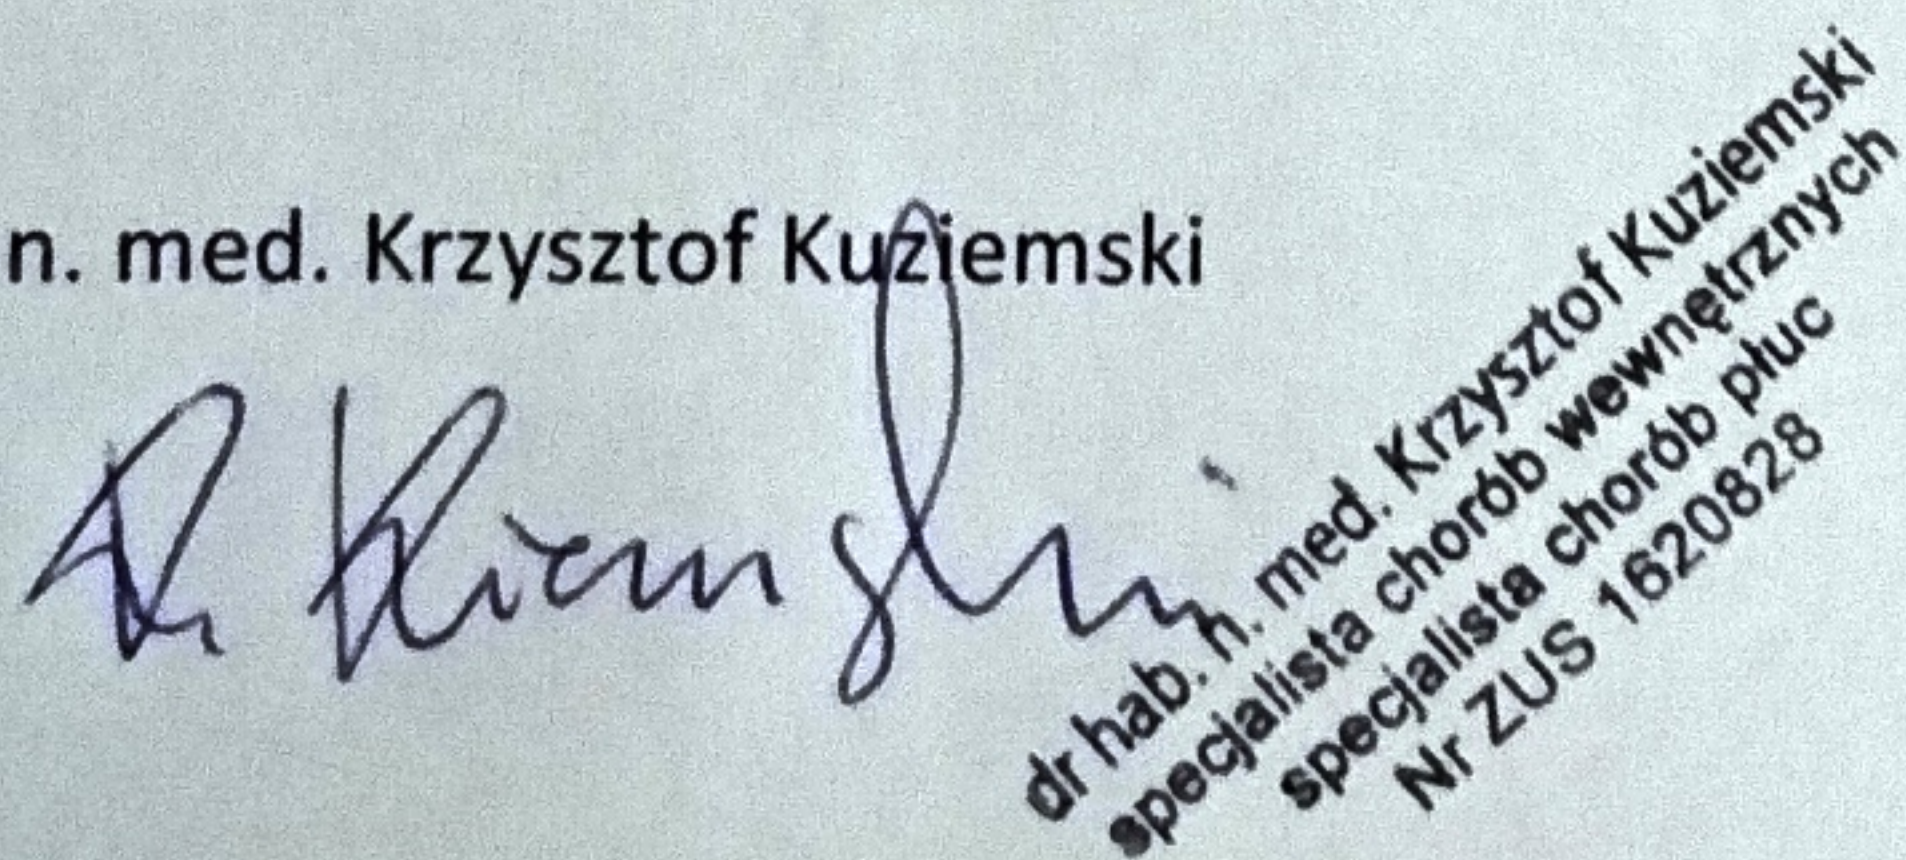 n. med. Krzysztof Kuziemski
dr hab. n. med. Krzysztof Kuziemski
specjalista chorób wewnętrznych
specjalista chorób płuc
Nr ZUS 1620828